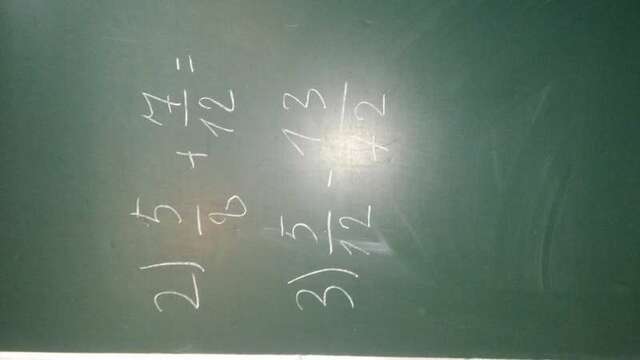 2) 5/8 + 7/12 =
3) 5/12 - 13/72